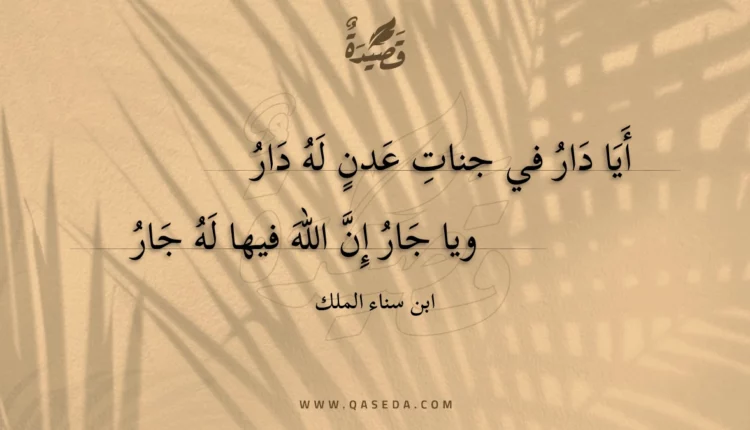 قَصِيْدَةٌ
أَيَا دَارُ في جناتِ عَدنٍ لَهُ دَارُ
ويا جَارُ إِنَّ اللّهَ فيها لَهُ جَارُ
ابن سناء الملك
WWW.QASEDA.COM